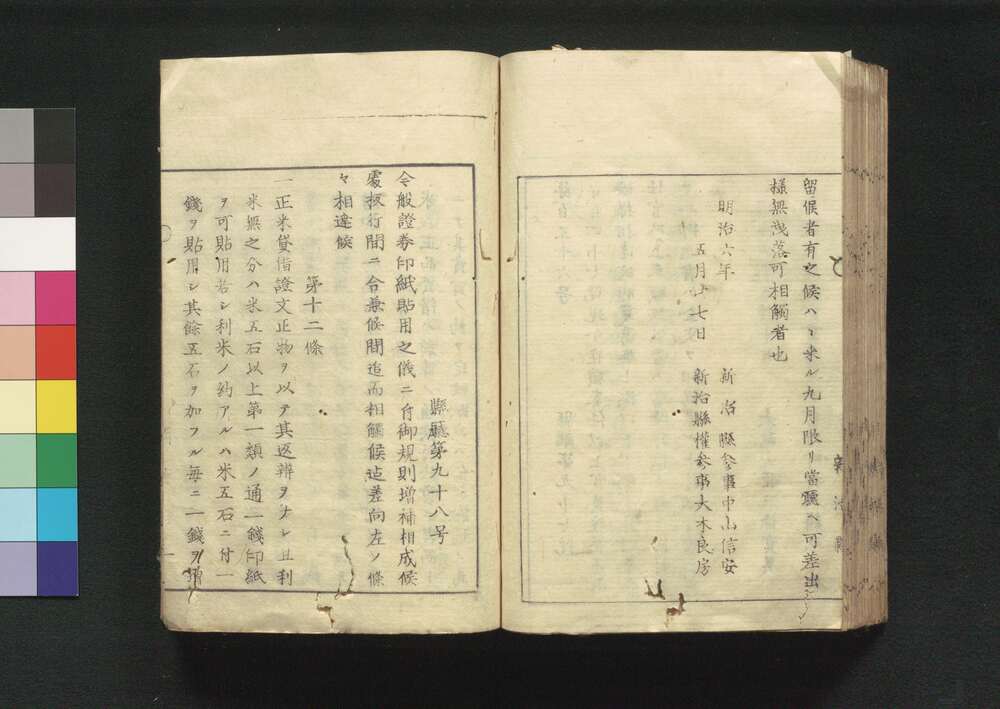 留候者有之候ハヽ来ル九月限リ當廳ヘ可差出
様無洩落可相觸者也
明治六年 新治縣參事中山信安
五月十七日 新治縣權參事大木良房
縣廳第九十八号
今般證券印紙貼用之儀ニ付御規則増補相成候
處扱行間ニ合兼候間追而相觸候迄差向左ノ條
々相達候
第十二條
一正米貸借證文正物ヲ以テ其返辨ヲナシ且利
米無之分ハ米五石以上第一類ノ通一錢印紙
ヲ可貼用若シ利米ノ約アルハ米五石ニ付一
錢ヲ貼用シ其餘五石ヲ加フル毎ニ一錢ヲ増